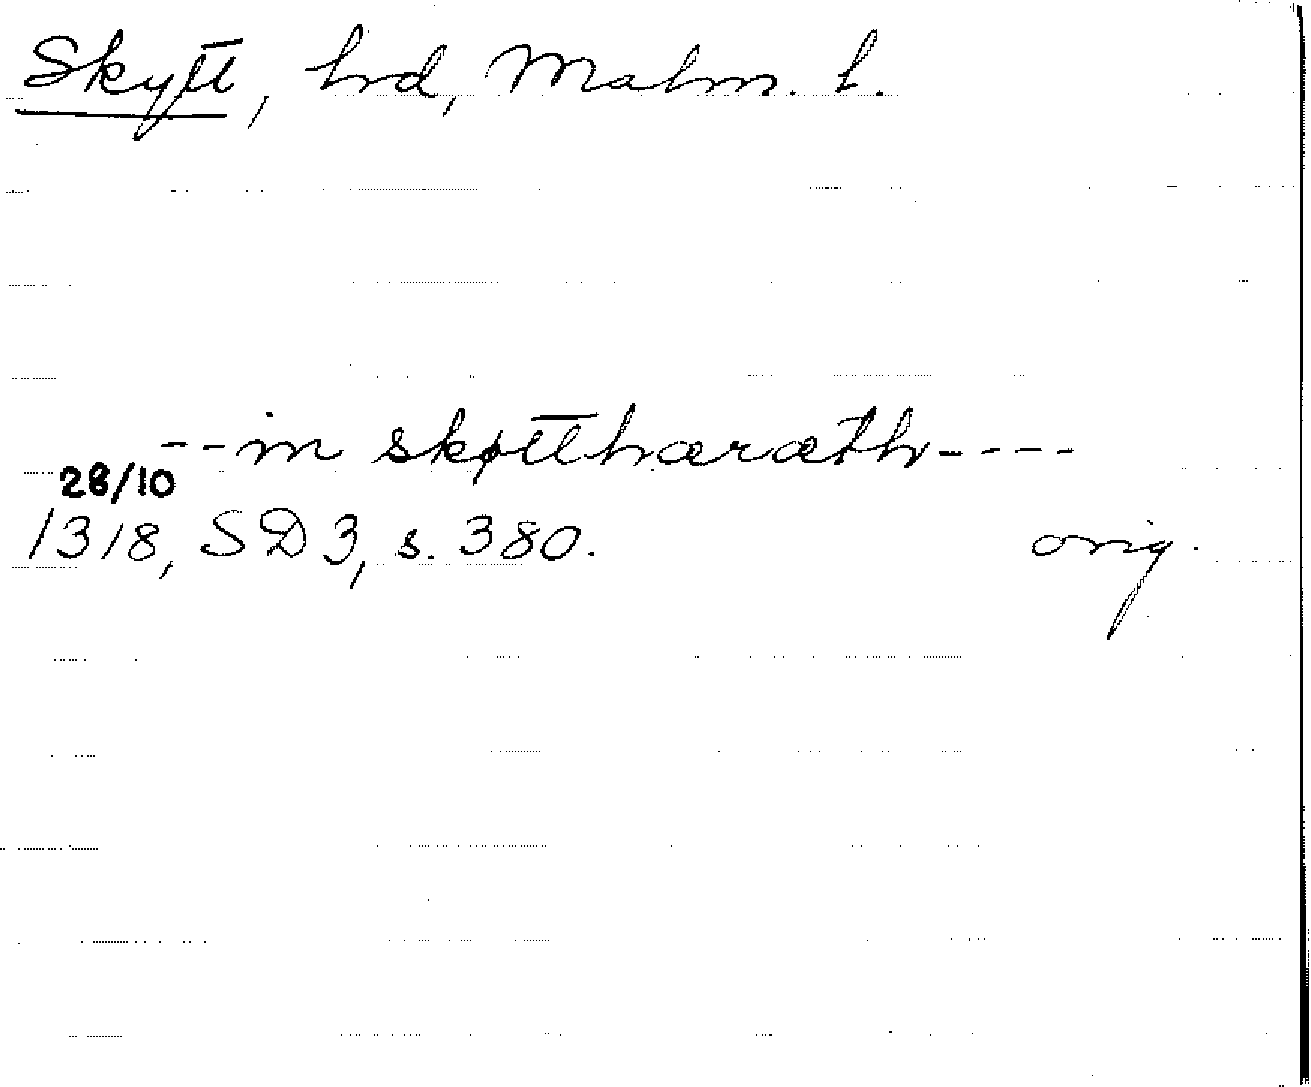 Skytt, hd, Malm. l.
--in skøtthæræth----
28/10
1318, SD 3, s. 380. orig.